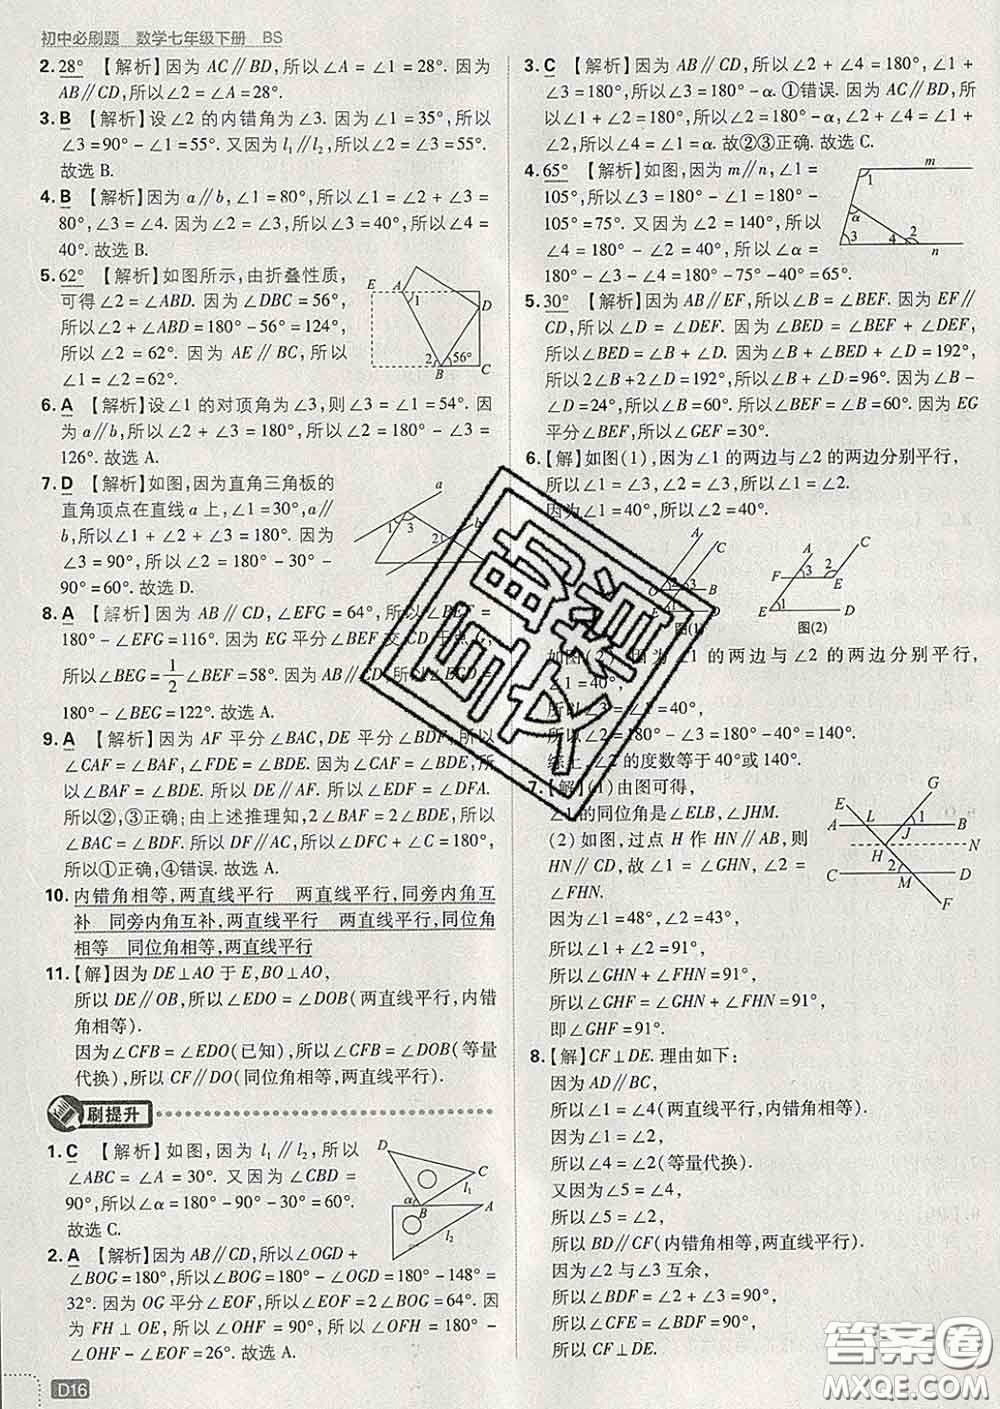 初中必刷题 数学七年级下册 BS
2. 28° 【解析】因为 AC∥BD,所以∠A=∠1=28°. 因为
AB∥CD,所以∠2=∠A=28°.
3. B 【解析】设∠2 的内错角为∠3. 因为∠1=35°,所以
∠3=90°-∠1=55°. 又因为 l₁∥l₂,所以∠2=∠3=55°.
故选 B.
4. B 【解析】因为 a∥b,∠1=80°,所以∠1=∠2+∠3=
80°,∠3=∠4. 因为∠2=∠3,所以∠3=40°,所以∠4=
40°. 故选 B.
5. 62° 【解析】如图所示,由折叠性质,
可得∠2=∠ABD. 因为∠DBC=56°,
所以∠2+∠ABD=180°-56°=124°,
所以∠2=62°. 因为 AE∥BC,所以
∠1=∠2=62°.
E A 1 D 2 56° B C
6. A 【解析】设∠1 的对顶角为∠3,则∠3=∠1=54°. 因
为 a∥b,所以∠2+∠3=180°,所以∠2=180°-∠3=
126°. 故选 A.
7. D 【解析】如图,因为直角三角板的
直角顶点在直线 a 上,∠1=30°,a∥
b,所以∠2=∠3=180°-90°-30°-
90°=60°. 故选 D.
a 1 3 2 b
8. A 【解析】因为 AB∥CD,∠EFG=64°,所以∠BEF=
180°-∠EFG=116°. 因为 EG 平分∠BEF 交 CD 于点 G,
所以∠BEG=1/2∠BEF=58°. 因为 AB∥CD,所以∠EGD=
180°-∠BEG=122°. 故选 A.
9. A 【解析】因为 AF 平分∠BAC,DE 平分∠BDF,所以
∠CAF=∠BAF,∠FDE=∠BDE. 因为∠CAF=∠BDE,所
以∠BAF=∠BDE. 所以 DE∥AF. 所以∠EDF=∠DFA.
所以②,③正确;由上述推理知,2∠BAF=2∠BDE,所以
∠BAC=∠BDF. 所以 DF∥AC. 所以∠DFC+∠C=180°.
所以①正确,④错误. 故选 A.
10. 内错角相等,两直线平行 两直线平行,同旁内角互
补 同旁内角互补,两直线平行 两直线平行,同位角
相等 同位角相等,两直线平行
11.【解】因为 DE⊥AO 于 E,BO⊥AO,
所以 DE∥OB,所以∠EDO=∠DOB(两直线平行,内错
角相等).
因为∠CFB=∠EDO(已知),所以∠CFB=∠DOB(等量
代换),所以 CF∥DO(同位角相等,两直线平行).
刷提升
1. C 【解析】如图,因为 l₁∥l₂,所以
∠ABC=∠A=30°. 又因为∠CBD=
90°,所以∠α=180°-90°-30°=60°.
故选 C.
D C l₁ α B A l₂
2. A 【解析】因为 AB∥CD,所以∠OGD+
∠BOG=180°,所以∠BOG=180°-∠OGD=180°-148°=
32°. 因为 OG 平分∠EOF,所以∠EOF=2∠BOG=64°. 又
因为 FH⊥OE,所以∠OHF=90°,所以∠OFH=180°-
90°-∠EOF=26°. 故选 A.
D16
3. C 【解析】因为 AB∥CD,所以∠2+∠4=180°,∠1+
∠3=180°,所以∠3=180°-α. ①错误. 因为 AC∥BD,所
以∠1+∠2=180°,所以∠2=180°-α,∠1+∠2=∠4+
∠2,所以∠4=∠1=α. 故②③正确. 故选 C.
4. 65° 【解析】如图,因为 m∥n,∠1=
105°,所以∠3=180°-∠1=180°-
105°=75°. 又因为∠2=140°,所以
∠4=180°-∠2=40°,所以∠α=
180°-∠3-∠4=180°-75°-40°=65°.
m 1 α 3 4 2 n
5. 30° 【解析】因为 AB∥EF,所以∠B=∠BEF. 因为 EF∥
CD,所以∠D=∠DEF. 因为∠BED=∠BEF+∠DEF,
所以∠BED=∠B+∠D. 因为∠B+∠BED+∠D=192°,
所以2∠B+2∠D=192°,所以∠B+∠D=96°. 因为∠B-
∠D=24°,所以∠B=60°. 所以∠BEF=∠B=60°. 因为 EG
平分∠BEF,所以∠GEF=30°.
6.【解】如图(1),因为∠1 的两边与∠2 的两边分别平行,
所以∠1=∠3,∠3=∠2,所以∠1=∠2.
因为∠1=40°,所以∠2=40°.
A C O 2 3 B E 1 图(1)
A C F 3 2 E E 1 D 图(2)
如图(2),因为∠1 的两边与∠2 的两边分别平行,
∠1=40°,
所以∠3=∠1=40°,
所以∠2=180°-∠3=180°-40°=140°.
综上,∠2 的度数等于 40°或 140°.
7.【解】(1)由图可得,
∠1的同位角是∠ELB,∠JHM.
(2)如图,过点 H 作 HN∥AB,则
HN∥CD,故∠1=∠GHN,∠2=
∠FHN.
因为∠1=48°,∠2=43°,
所以∠1+∠2=91°,
所以∠GHN+∠FHN=91°,
所以∠GHF=∠GHN+∠FHN=91°,
即∠GHF=91°.
E G A L 1 B J H N 2 C M D F
8.【解】CF⊥DE. 理由如下:
因为 AD∥BC,
所以∠1=∠4(两直线平行,内错角相等).
因为∠1=∠2,
所以∠4=∠2(等量代换).
又因为∠5=∠4,
所以∠2=∠5,
所以 BD∥CF(内错角相等,两直线平行).
因为∠2 与∠3 互余,
所以∠BDF=∠2+∠3=90°,
所以∠CFE=∠BDF=90°,
所以 CF⊥DE.
答案圈
MXQE.COM